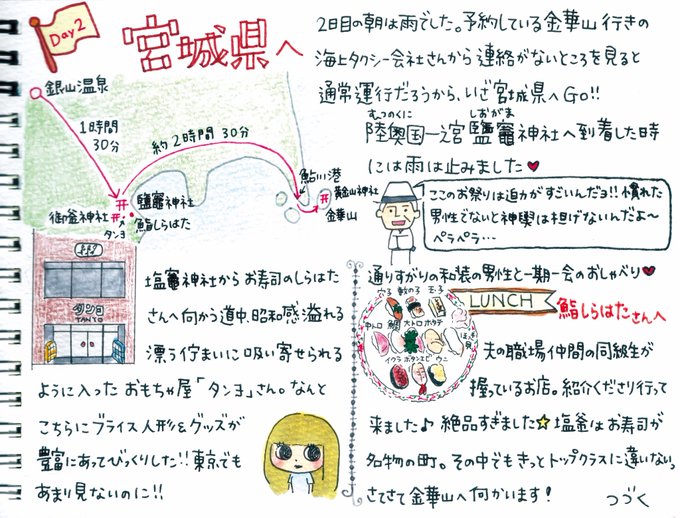 Day2
宮城県へ
銀山温泉
1時間
30分
約2時間30分
鮎川港
黄金山神社
金華山
鹽竈神社
御釜神社
鮨しらはた
タンヨ
2日目の朝は雨でした。予約している金華山行きの
海上タクシー会社さんから連絡がないところを見ると
通常運行だろうから、いざ宮城県へGO!!
むつのくに
しおがま
陸奥国一之宮鹽竈神社へ到着した時
には雨は止みました♥
ここのお祭りは迫力がすごいんだヨ!!慣れた
男性でないと神輿は担げないんだよ〜
ペラペラ…
通りすがりの和装の男性と一期一会のおしゃべり♥
タンヨ
TANYO
塩竈神社からお寿司のしらはた
さんへ向かう道中、昭和感溢れる
漂う佇まいに吸い寄せられる
ように入ったおもちゃ屋「タンヨ」さん。なんと
こちらにブライス人形&グッズが
豊富にあってびっくりした!!東京でも
あまり見ないのに!!
LUNCH
鮨しらはたさんへ
穴子
玉子
中トロ
鯛
大トロ
ホタテ
イクラ
ボタンエビ
ウニ
夫の職場仲間の同級生が
握っているお店。紹介くださり行って
来ました♪絶品すぎました☆塩釜はお寿司が
名物の町。その中でもきっとトップクラスに違いない。
さてさて金華山へ向かいます!
つづく